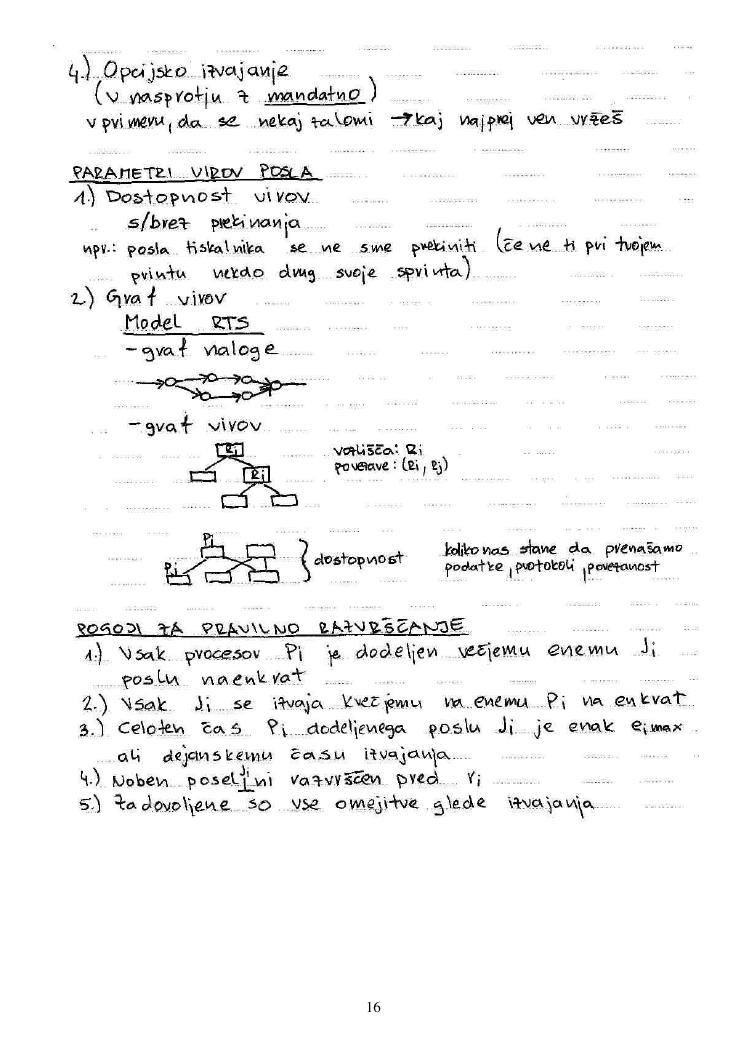 4.) Opcijsko izvajanje
(v nasprotju z mandatno)
v primeru, da se nekaj zalomi → kaj najprej ven vržeš
PARAMETRI VIROV POSLA
1.) Dostopnost virov
s/brez prekinanja
npr.: posla tiskalnika se ne sme prekiniti (če ne ti pri tvojem
printu nekdo drug svoje sprinta)
2.) Graf virov
Model RTS
- graf naloge
- graf virov
Ri
vozlišča: Ri
Rj
povezave: (Ri, Rj)
Pi
Pj
dostopnost
koliko nas stane da prenašamo
podatke, protokoli, povezanost
POGOJI ZA PRAVILNO RAZVRŠČANJE
1.) Vsak procesov Pi je dodeljen večjemu enemu Ji
poslu naenkrat
2.) Vsak Ji se izvaja kvečjemu na enemu Pi na enkrat
3.) Celoten čas Pi dodeljenega poslu Ji je enak ei max
ali dejanskemu času izvajanja
4.) Noben posel Ji ni razvrščen pred ri
5.) Zadovoljene so vse omejitve glede izvajanja
16